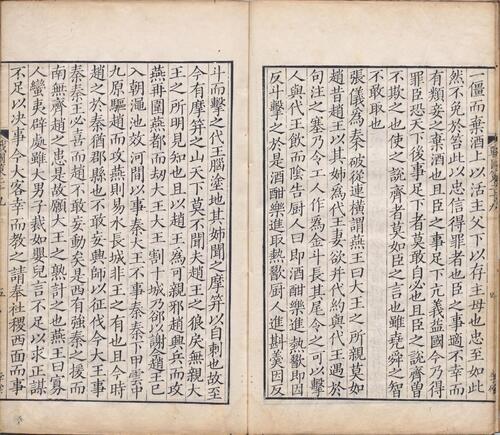 一僵而棄酒上以活主父下以存主母也忠至如此
然不免於笞此以忠信得罪者也臣之事適不幸而
有類妾之棄酒也且臣之事足下亢義益國今乃得
罪臣恐天下後事足下者莫敢自必也且臣之說齊曾
不欺之也使之說齊者莫如臣之言也雖堯舜之智
不敢取也
張儀為秦破從連橫謂燕王曰大王之所親莫如
趙昔趙王以其姊為代王妻欲并代約與代王遇於
句注之塞乃令工人作為金斗長其尾令之可以擊
人與代王飲而陰告廚人曰即酒酣樂進熱歠即因
反斗擊之於是酒酣樂進取熱歠廚人進斟羹因反
斗而擊之代王腦塗地其姊聞之摩笄以自刺也故至
今有摩笄之山天下莫不聞夫趙王之狼戾無親大
王之所明見知也且以趙王為可親邪趙興兵而攻
燕再圍燕都而劫大王大王割十城乃郤以謝今趙王已
入朝澠池效河間以事秦大王不事秦秦下甲雲中
九原驅趙而攻燕則易水長城非王之有也且今時
趙之於秦猶郡縣也不敢妄興師以征伐今大王事
秦秦王必喜而趙不敢妄動矣是西有強秦之援而
南無齊趙之患是故願大王之熟計之也燕王曰寡
人蠻夷辟處雖大男子裁如嬰兒言不足以求正謀
不足以決事今大客幸而教之請奉社稷西面而事